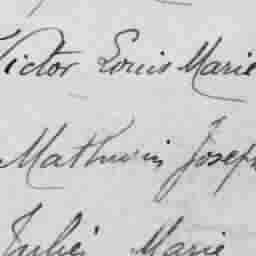 Victor Louis Marie
Mathurin Joseph
Julie Marie